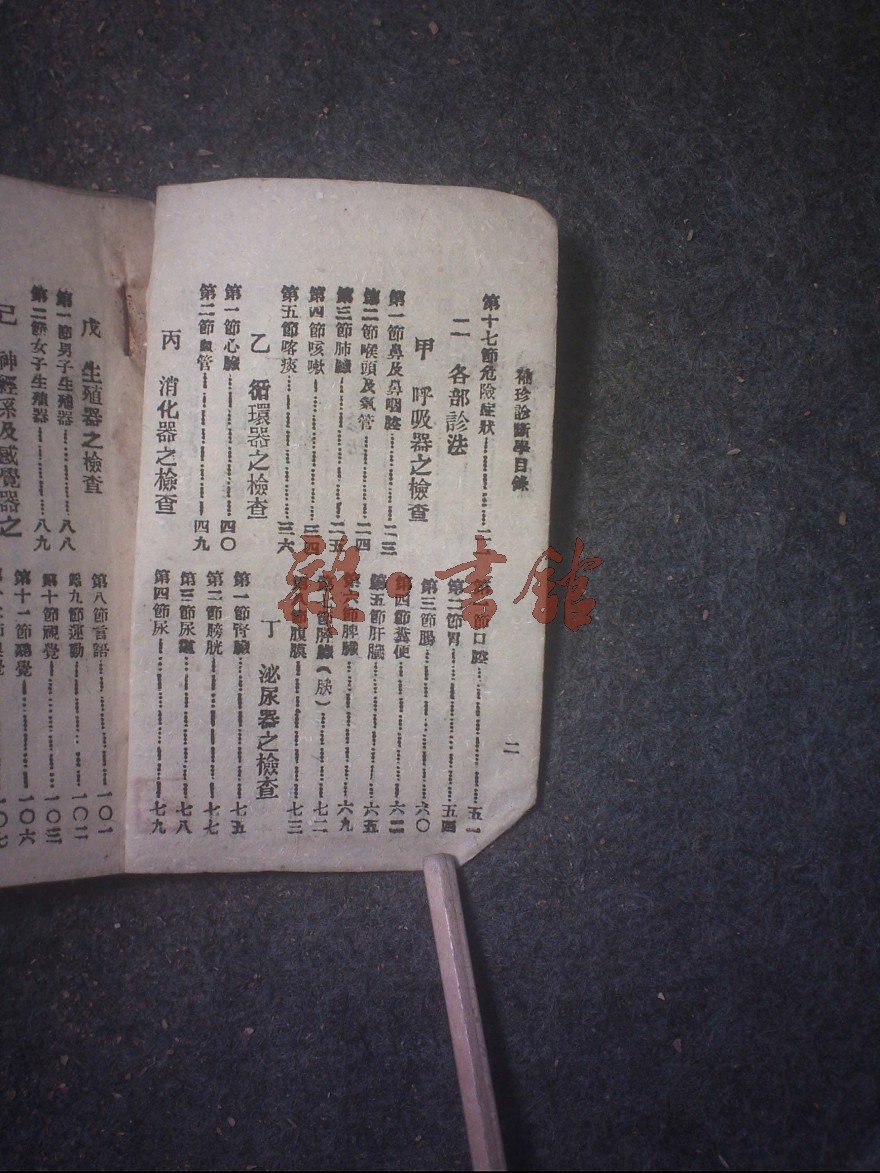 袖珍診斷學目錄
第十七節危險症狀
二 各部診法
甲 呼吸器之檢查
第一節鼻及鼻咽腔……二三
第二節喉頭及氣管……二四
第三節肺臟……二五
第四節咳嗽……三四
第五節喀痰……三六
乙 循環器之檢查
第一節心臟……四〇
第二節血管……四九
丙 消化器之檢查
第一節口腔……五一
第二節胃……五四
第三節腸……六〇
第四節糞便……六二
第五節肝臟……六五
節脾臟……六九
第七節脺臟(膵)……七二
第八節腹膜……七三
丁 泌尿器之檢查
第一節腎臟……七五
第二節膀胱……七七
第三節尿道……七八
第四節尿……七九
二
戊 生殖器之檢查
第一節男子生殖器……八八
第二節女子生殖器……八九
己 神經系及感覺器之
第八節言語……一〇一
第九節運動……一〇二
第十節視覺……一〇三
第十一節聽覺……一〇六
一〇七
雜·書館